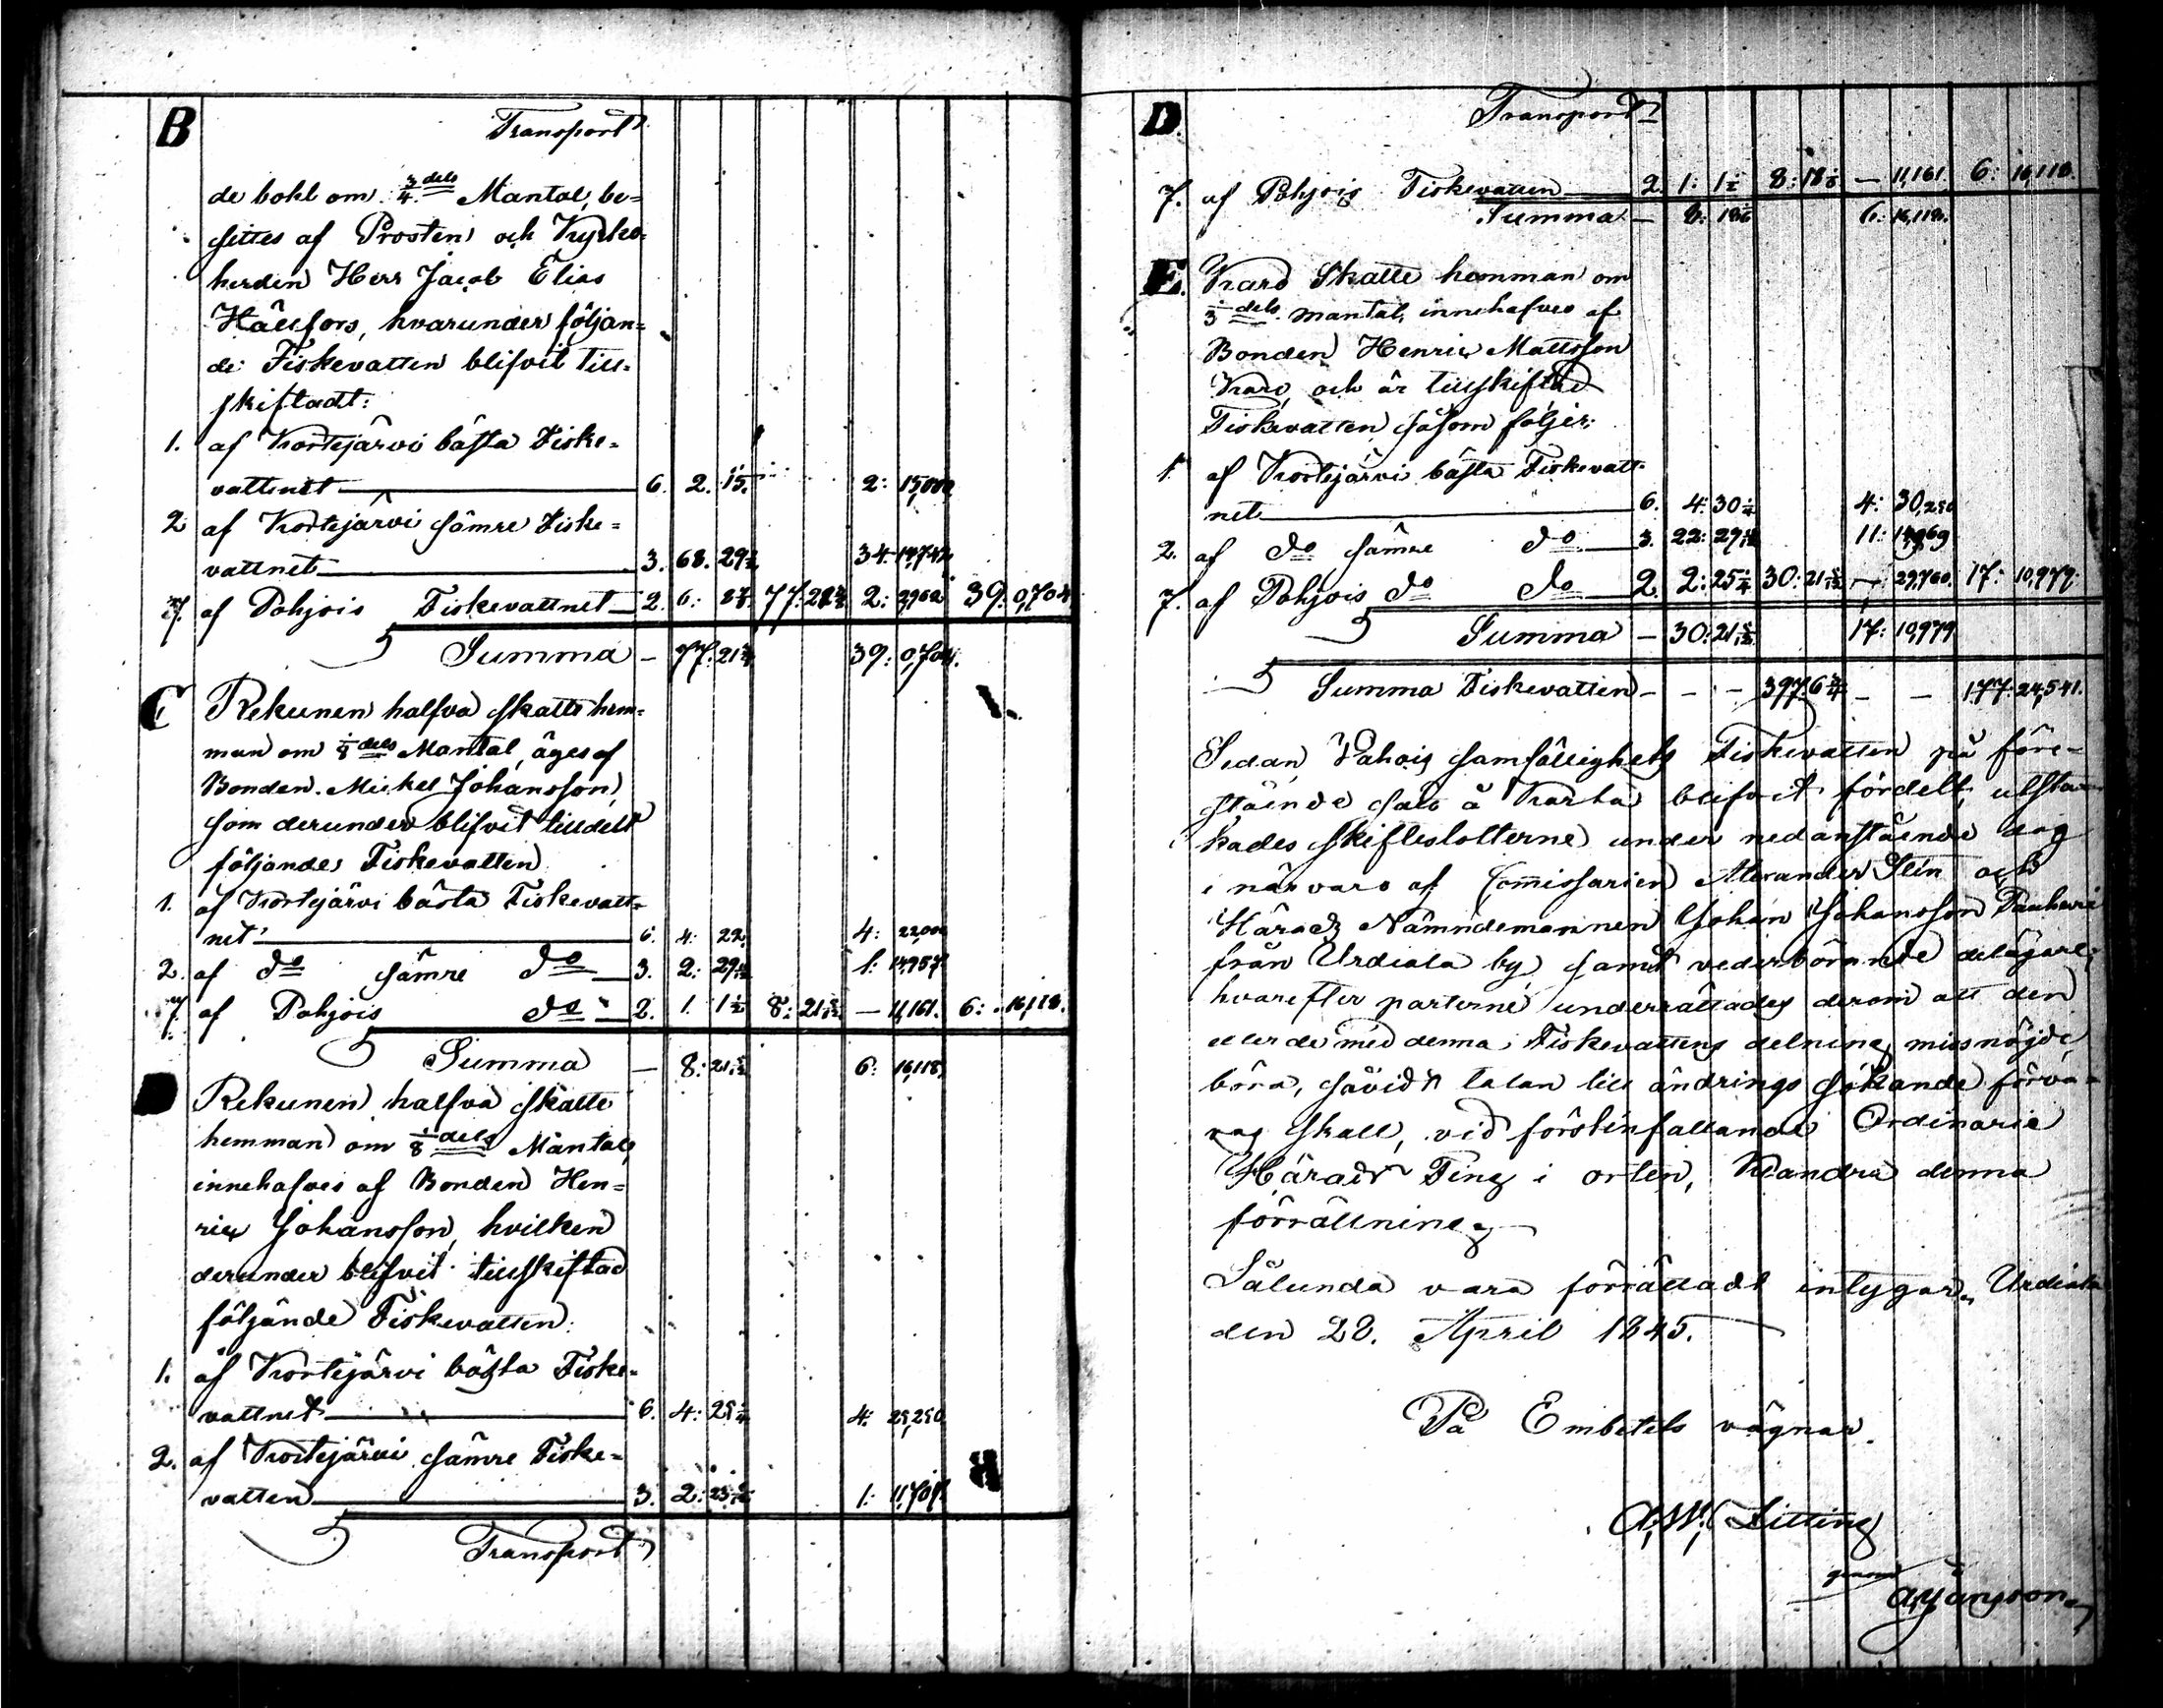 B Transport
de bohl om 3/4 dels Mantal, be=
sittes af Prosten och Kyrko=
herden Herr Jacob Elias
Hällfors, hvarunder följan=
de Fiskevatten blifvit till=
skiftadt:
1. af Kortejärvi bästa Fiske=
vattnet 6. 2. 15. 2: 15,000
2 af Kortejärvi sämre Fiske=
vattnet 3. 68. 34.
7. af Pohjois Fiskevattnet 2. 6: 2: 39: 0,704
Summa — 77: 39: 0,704.
C Rekunen halfva skatte hem=
man om 1/8 dels Mantal, äges af
Bonden Mickel Johansson,
som derunder blifvit tilldelt
följande Fiskevatten
1. af Kortejärvi bästa Fiskevatt=
net 6. 4: 22. 4: 22,000
2. af do sämre do 3. 2: 1: 14,957
7. af Pohjois do 2. 1. 1 1/2 8: — 11,161. 6: 16,118.
Summa — 8: 6: 16,118.
Rekunen halfva skatte
hemman om 1/8 dels Mantal,
innehafves af Bonden Hen=
ric Johansson, hvilken
derunder blifvit tillskiftad
följande Fiskevatten:
1. af Kortejärvi bästa Fiske=
vattnet 6. 4: 25 1/4 4: 25,250
2. af Kortejärvi sämre Fiske=
vatten 3. 2: 1: 11,707.
Transport
D. Transport
7. af Pohjois Fiskevatten 2. 1: 1 1/2 8: — 11,161. 6: 16,118.
Summa — 8: 6: 16,118.
E. Karo Skatte hemman om
1/3 dels mantal, innehafves af
Bonden Henric Mattsson
Karo, och är tillskiftad
Fiskevatten såsom följer:
1 af Kortejärvi bästa Fiskevatt=
net 6. 4: 30 1/4 4: 30,250
2. af do sämre do 3. 22: 11:
7. af Pohjois do do 2. 2: 25 30: — 29,760. 17: 10,979.
Summa — 30: 17: 10,979
Summa Fiskevatten — — — 397: — — 177: 24,541.
Sedan samfällighets Fiskevatten på före=
stående sätt å Karta blifvit fördelt, utsta=
kades skifteslotterne under nedanstående dag
i närvaro af Commissarien Alexander och
Härads Nämndemannen Johan Johansson
från Urdiala by, samt vederbörande delägare;
hvarefter parterne underrättades derom att den
eller de med denna Fiskevattens delning missnöjde
böra, såvidt talan till ändrings sökande förva=
ras skall, vid förstinfallande Ordinarie
Härads Ting i orten, klandra denna
förrättning.
Sålunda vara förrättadt intygar, Urdiala
den 28. April 1845.
På Embetets vägnar.
A: W: Litting